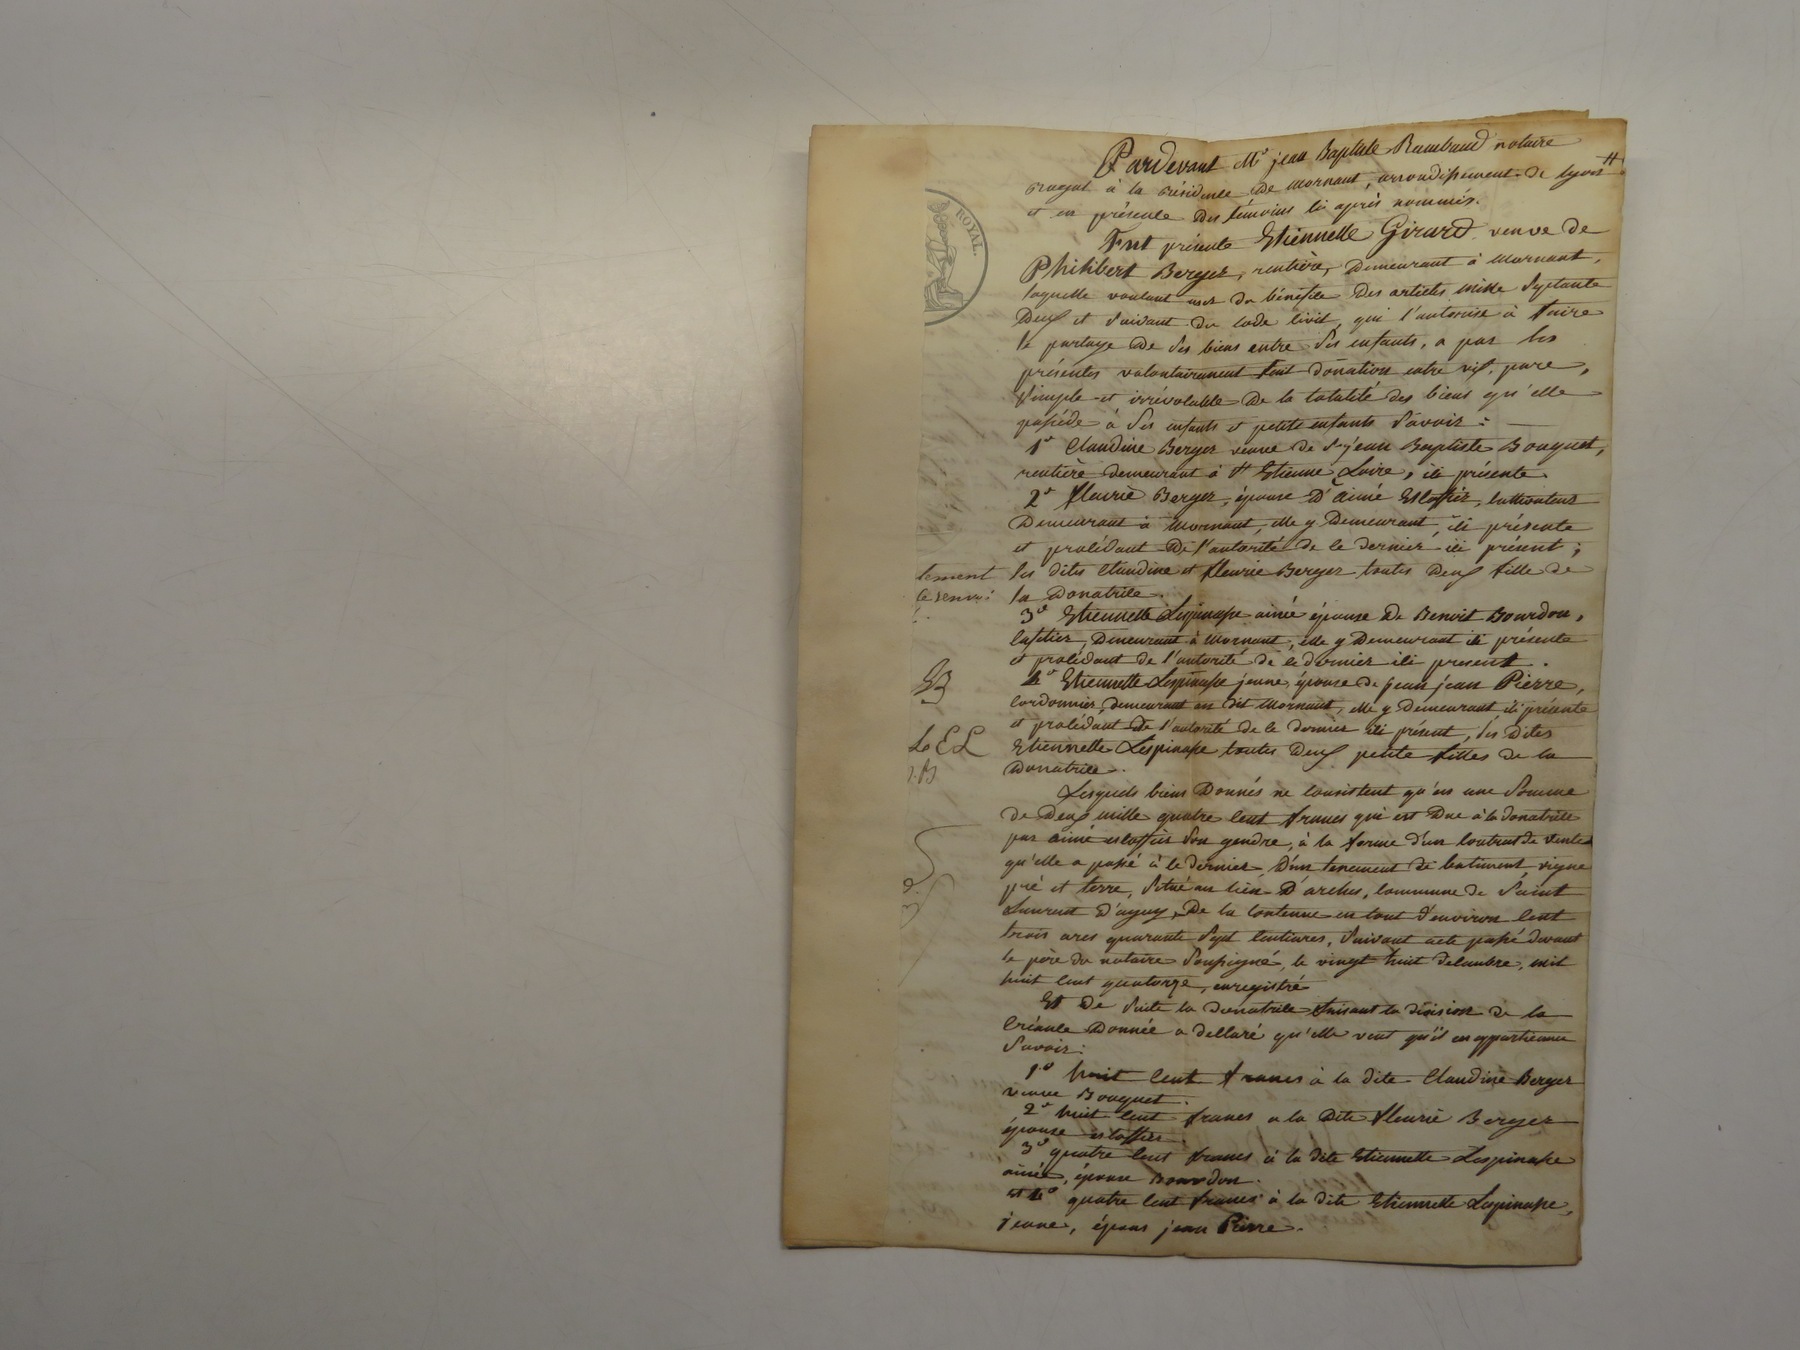 Pardevant Me jean Baptiste Rambaud notaire
royal à la résidence de Mornant, arrondissement de lyon #
et en présence des témoins ci après nommés.
Fut présente Etiennette Girard veuve de
Philibert Berger, rentière, demeurant à Mornant,
laquelle voulant user du bénéfice des articles mille septante
Deux et suivant du code civil, qui l'autorise à faire
le partage de ses biens entre ses enfants, a par les
présentes volontairement fait donation entre vifs, pure,
simple et irrévocable de la totalité des biens qu'elle
possède à ses enfants et petits enfants Savoir :
1º Claudine Berger veuve de Sr jean Baptiste Bouquet,
rentière demeurant à St Etienne Loire, ici présente
2º fleurie Berger, épouse d'aimé Escoffier, cultivateur
Demeurant à Mornant, elle y Demeurant, ici présente
et procédant de l'autorité de ce dernier ici présent ;
les dites Claudine et fleurie Berger toutes deux fille de
la Donatrice.
3º Etiennette Lespinasse ainée épouse de Benoit Bourdon,
cafetier, Demeurant à Mornant, elle y Demeurant ici présente
et procédant de l'autorité de ce dernier ici present.
4º Etiennette Lespinasse jeune, épouse de jean jean Pierre,
cordonnier, demeurant au dit Mornant, elle y Demeurant ici présente
et procédant de l'autorité de ce dernier ici présent, les Dites
Etiennette Lespinasse toutes Deux petite filles de la
Donatrice.
Lesquels biens Donnés ne consistent qu'en une Somme
de Deux mille quatre cent francs qui est Due à la donatrice
par aimé escoffier son gendre, à la forme d'un contrat de vente
qu'elle a passé à ce dernier D'un tenement de batiment vigne
pré et terre, situé au lieu D'arches, commune de Saint
Laurent d'agny, De la contenue en tout d'environ cent
trois ares quarante sept centiares, suivant acte passé devant
le père du notaire soussigné, le vingt huit decembre, mil
huit cent quatorze, enregistré
Et De suite la donatrice faisant la division de la
Créance Donnée a déclaré qu'elle veut qu'il en appartienne
Savoir :
1º huit cent francs à la dite Claudine Berger
veuve Bouquet.
2º huit cent francs a la Dite fleurie Berger
épouse escoffier.
3º quatre cent francs à la dite Etiennette Lespinasse
ainée, épouse Bourdon.
et 4º quatre cent francs à la dite Etiennette Lespinasse,
jeune, épous jean Pierre.
ROYAL
tement
ce renvoi
EB
Lo E L
J.B